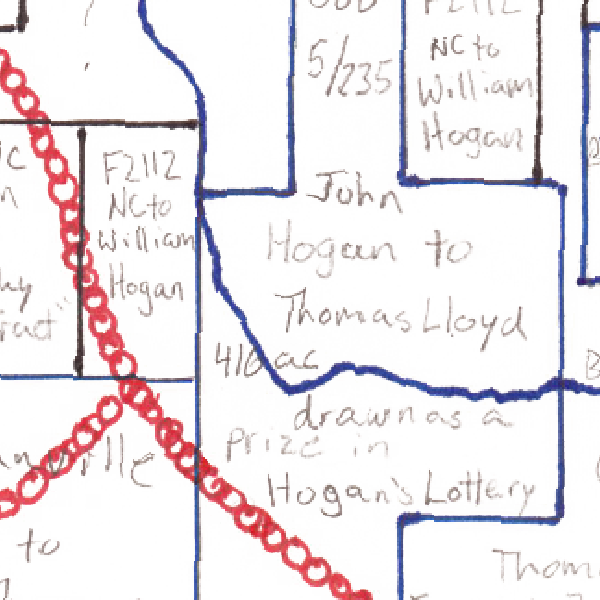 5/235
F2112
NC to
William
Hogan
F2112
NC to
William
Hogan
John
Hogan to
Thomas Lloyd
410 ac
drawn as a
prize in
Hogan's Lottery
to